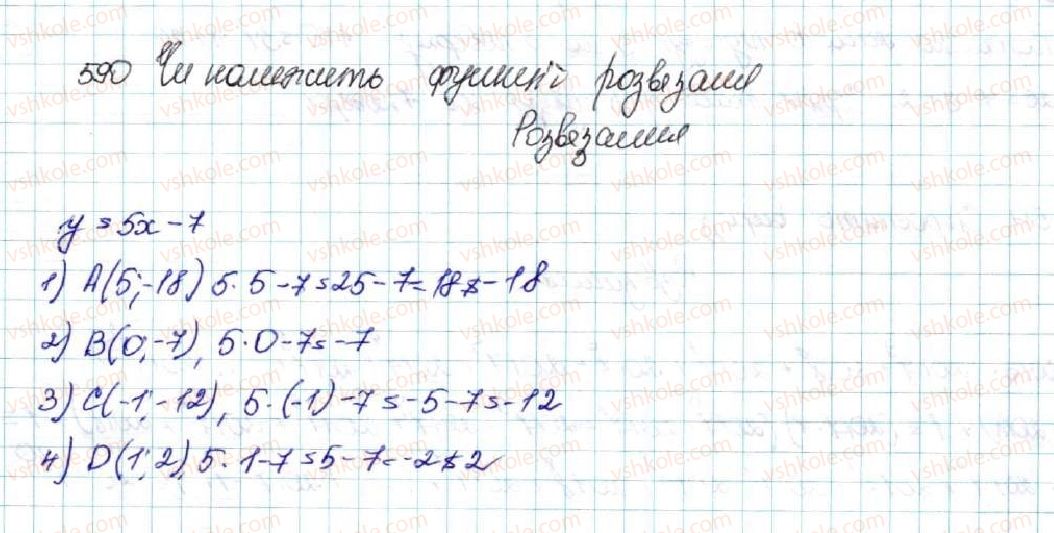 590 Чи належить функції розвязання
Розвязання
y = 5x - 7
1) A(5; -18) 5 · 5 - 7 = 25 - 7 = 18 ≠ -18
2) B(0; -7), 5 · 0 - 7 = -7
3) C(-1; -12), 5 · (-1) - 7 = -5 - 7 = -12
4) D(1; 2), 5 · 1 - 7 = 5 - 7 = -2 ≠ 2